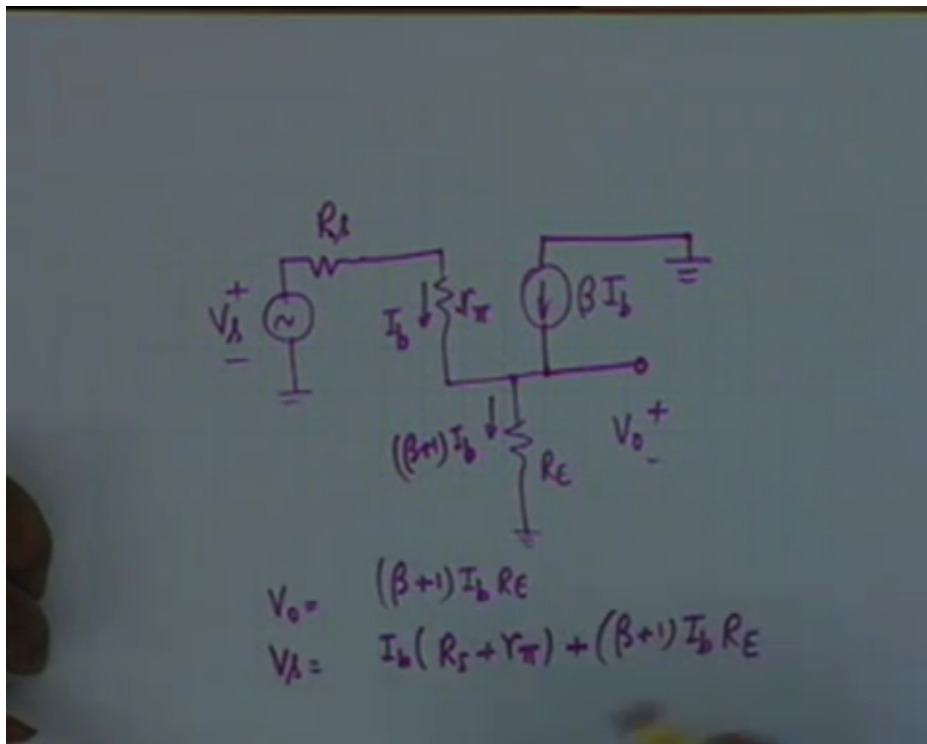 Rs
Vs + −
Ib
rπ
βIb
(β+1)Ib
RE
Vo + −
Vo = (β+1) Ib RE
Vs = Ib (Rs + rπ) + (β+1) Ib RE